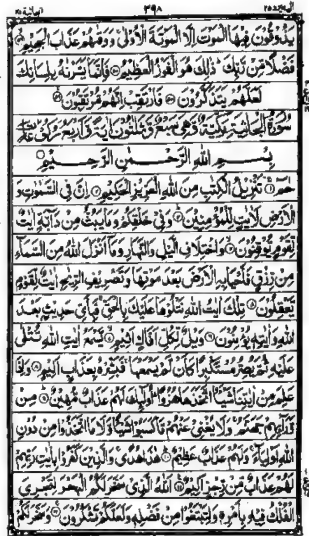 ۳۹۸
يَذُوقُونَ فِيهَا الْمَوْتَ إِلَّا الْمَوْتَةَ الْأُولَىٰ وَوَقٰهُمْ عَذَابَ الْجَحِيمِ
فَضْلًا مِّنْ رَّبِّكَ ذٰلِكَ هُوَ الْفَوْزُ الْعَظِيمُ فَإِنَّمَا يَسَّرْنٰهُ بِلِسَانِكَ
لَعَلَّهُمْ يَتَذَكَّرُونَ فَارْتَقِبْ إِنَّهُمْ مُّرْتَقِبُونَ
سُورَةُ الْجَاثِيَةِ مَكِّيَّةٌ وَهِيَ سَبْعٌ وَثَلٰثُونَ آيَةً وَأَرْبَعُ رُكُوعَاتٍ
بِسْمِ اللهِ الرَّحْمٰنِ الرَّحِيمِ
حٰمٓ تَنْزِيلُ الْكِتٰبِ مِنَ اللهِ الْعَزِيزِ الْحَكِيمِ إِنَّ فِي السَّمٰوٰتِ وَ
الْأَرْضِ لَاٰيٰتٍ لِّلْمُؤْمِنِينَ وَفِي خَلْقِكُمْ وَمَا يَبُثُّ مِنْ دَابَّةٍ اٰيٰتٌ
لِّقَوْمٍ يُّوقِنُونَ وَاخْتِلَافِ الَّيْلِ وَالنَّهَارِ وَمَا أَنْزَلَ اللهُ مِنَ السَّمَاءِ
مِنْ رِّزْقٍ فَأَحْيَا بِهِ الْأَرْضَ بَعْدَ مَوْتِهَا وَتَصْرِيفِ الرِّيٰحِ اٰيٰتٌ لِّقَوْمٍ
يَّعْقِلُونَ تِلْكَ اٰيٰتُ اللهِ نَتْلُوهَا عَلَيْكَ بِالْحَقِّ فَبِأَيِّ حَدِيثٍ بَعْدَ
اللهِ وَاٰيٰتِهِ يُؤْمِنُونَ وَيْلٌ لِّكُلِّ أَفَّاكٍ أَثِيمٍ يَسْمَعُ اٰيٰتِ اللهِ تُتْلٰى
عَلَيْهِ ثُمَّ يُصِرُّ مُسْتَكْبِرًا كَأَنْ لَّمْ يَسْمَعْهَا فَبَشِّرْهُ بِعَذَابٍ أَلِيمٍ وَإِذَا
عَلِمَ مِنْ اٰيٰتِنَا شَيْئًا اتَّخَذَهَا هُزُوًا أُولٰئِكَ لَهُمْ عَذَابٌ مُّهِينٌ مِنْ
وَّرَائِهِمْ جَهَنَّمُ وَلَا يُغْنِي عَنْهُمْ مَّا كَسَبُوا شَيْئًا وَّلَا مَا اتَّخَذُوا مِنْ دُونِ
اللهِ أَوْلِيَاءَ وَلَهُمْ عَذَابٌ عَظِيمٌ هٰذَا هُدًى وَالَّذِينَ كَفَرُوا بِاٰيٰتِ رَبِّهِمْ
لَهُمْ عَذَابٌ مِّنْ رِّجْزٍ أَلِيمٌ اللهُ الَّذِي سَخَّرَ لَكُمُ الْبَحْرَ لِتَجْرِيَ
الْفُلْكُ فِيهِ بِأَمْرِهِ وَلِتَبْتَغُوا مِنْ فَضْلِهِ وَلَعَلَّكُمْ تَشْكُرُونَ وَسَخَّرَ لَكُمْ